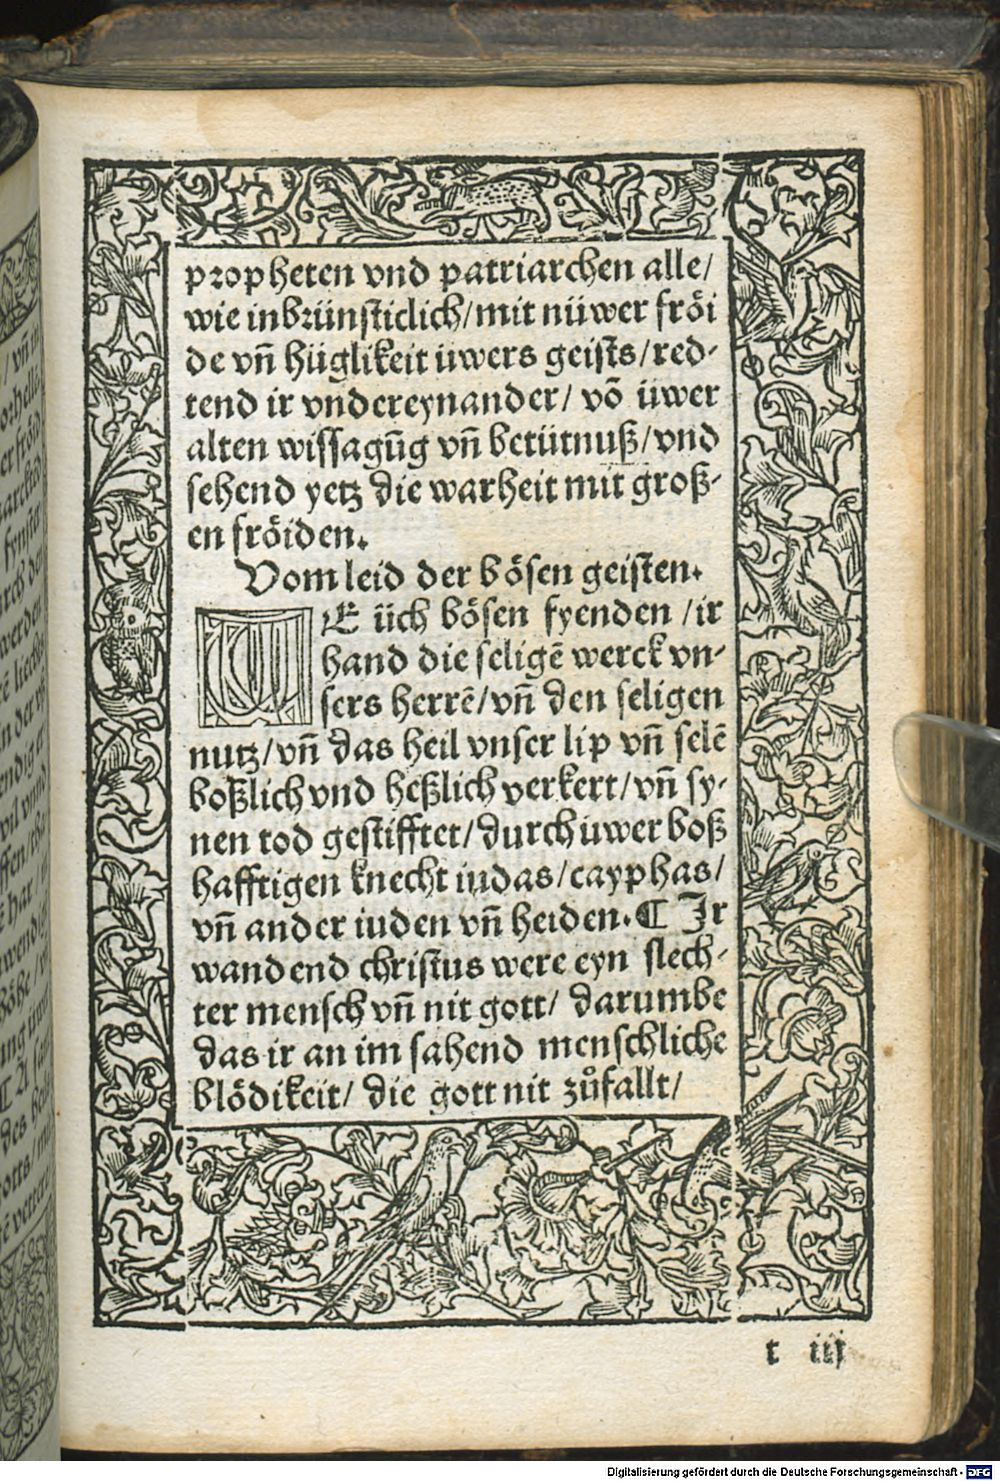 propheten vnd patriarchen alle/
wie inbrünsticlich/mit nüwer fröi
de vn̄ hüglikeit üwers geists/red-
tend ir vndereynander/ vō üwer
alten wissagūg vn̄ betütnuß/vnd
sehend yetz die warheit mit groß-
en fröiden.
Vom leid der bösen geisten.
WE üch bösen fyenden /ir
hand die seligē werck vn-
sers herrē/vn̄ den seligen
nutz/vn̄ das heil vnser lip vn̄ selē
boßlich vnd heßlich verkert/vn̄ sy-
nen tod gestifftet/durch üwer boß
hafftigen knecht iudas/cayphas/
vn̄ ander iuden vn̄ heiden.¶ Ir
wandend christus were eyn slech-
ter mensch vn̄ nit gott/ darumbe
das ir an im sahend menschliche
blödikeit/ die gott nit zůfallt/
t iij
Digitalisierung gefördert durch die Deutsche Forschungsgemeinschaft - DFG